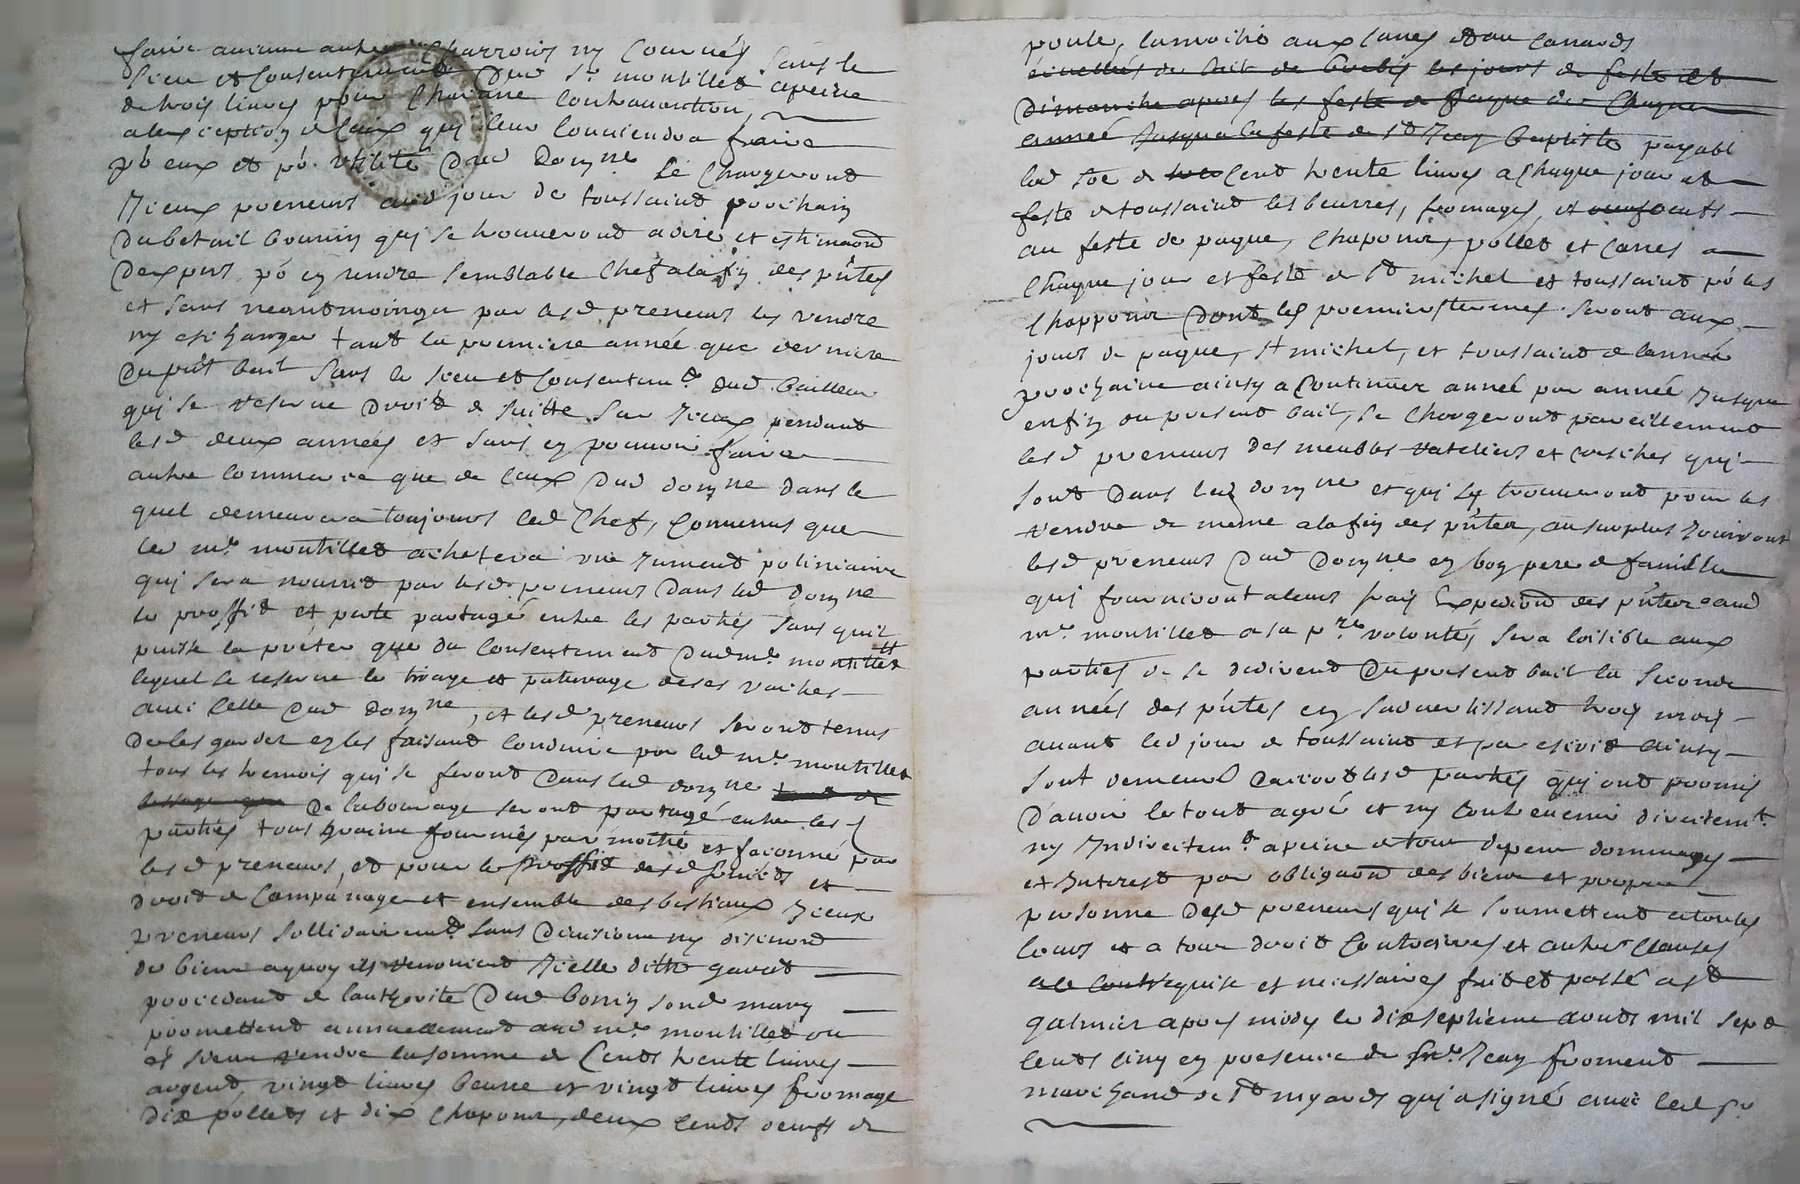 faire aucune autre charrois ny courvés sans le
sceu et consentement dud sr montillet a peine
de trois livres pour chacune contravention,
a lexception de ceux quy leur conviendra faire
pr eux et pr utilité dud domne se chargeront
iceux preneurs aud jour de toussaind prochain
du betail bouvin quj se trouverond a dire et estimaon
dexpers po en rendre semblable chef a la fin des pntes
et sans neantmoingn par lesd preneurs les vendre
ny eschanger tant la premiere année que derniere
du pnt bail sans le sceu et consentemt dud bailleur
quj se reserve droit de suitte sur iceux pendant
lesd deux années et sans en pouvoir faire
autre commerce que de ceux dud domne dans le
quel demeurera toujours led chef, convenus que
led mr montillet achetera une jument poliniaire
quj sera nourrit par lesd preneurs dans led domne
le proffit et perte partagé entre les parties sans quil
puisse la preter que du consentement dud mr montillet
lequel se reserve le triage et paturage de ses vaches
avec celle dud domne, et lesd preneurs seront tenus
de les garder en les faisant conduire par led mr montillet
tous les tremois quj se feront dans led domne
de labourage seront partagé entre les
parties tous graine fournies par moitié et faconné par
lesd preneurs, et pour le proffit desd fruits et
droit de campanage et ensemble des bestiaux iceux
preneurs sollidairemt sans division ny discution
de biens a quoy ils renoncent icelle ditte gavat
procedant de lauthorité dud bonin sond mary
promettent annuellement aud mr montillet ou
es siens rendre la somme de cents trente livres
argent, vingt livres beurre et vingt livres fromage
dix pollets et dix chapons, deux cents oeufs de
poule, la moitié aux canes et au canards
écuellées de lait de brebis les jours de feste et
dimanche apres les feste de paque de chaque
année jusqua la feste de st Jean baptiste payabl
lad soe de cent trente livres a chaque jour et
feste de toussaint les beurres, fromages, et oeufs
au feste de paque, chapons, pollet et canes a
chaque jour et feste de st michel et toussaind po les
chappons dont les premiers termes seront aux
jours de paque, st michel, et toussaind de lannée
prochaine ainsy a continuer année par année jusque
enfin du present bail, se chargeront pareillement
lesd preneurs des meubles rateliers et creches quj
sont dans led domne et quj sy trouveront pour les
rendre de meme a la fin des pntes, au surplus jouiront
lesd preneurs dud domne en bon pere de famille
quj fourniront a leurs frais expedion des pntes aud
mr montillet a sa pre volontés, sera loisible aux
parties de se dedivend du present bail la seconde
années des pntes en sadvertissant trois mois
avant led jour de toussaint et par escrit ainsy
sont demeuré daccord lesd parties quj ont promis
davoir le tout agré et ny contrevenir directemt
ny indirectemt a peine de tous depens dommages
et interest par obligaon des biens et propre
personne desd preneurs quj se soumettent a toutes
cours et a tous droit contraires et autres clauses
requise et necessaires fait et passé a st
galmier apres midy le dixseptieme aoust mil sept
cents cinq en presence de sr Jean froment
marchand de st myards quj a signé avec led sr